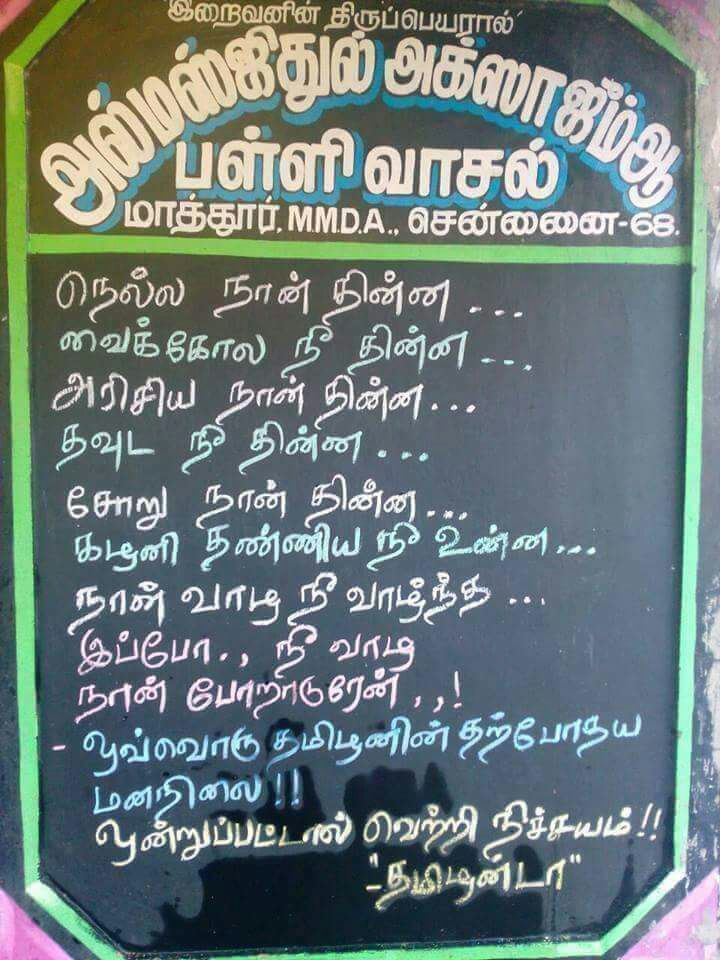 இறைவனின் திருப்பெயரால்
அல்மஸ்ஜிதுல் அக்ஸா ஜீம்ஆ
பள்ளி வாசல்
மாத்தூர், M.M.D.A., சென்னை-68.
நெல்ல நான் தின்ன ...
வைக்கோல நீ தின்ன ...
அரிசிய நான் தின்ன...
தவுட நீ தின்ன ...
சோறு நான் தின்ன...
கழனி தண்ணிய நீ உண்ண...
நான் வாழ நீ வாழ்ந்த ...
இப்போ., நீ வாழ
நான் போறாடுரேன்.,.!
- ஒவ்வொரு தமிழனின் தற்போதய
மனநிலை!!
ஒன்றுப்பட்டால் வெற்றி நிச்சயம்!!
- "தமிழன்டா"